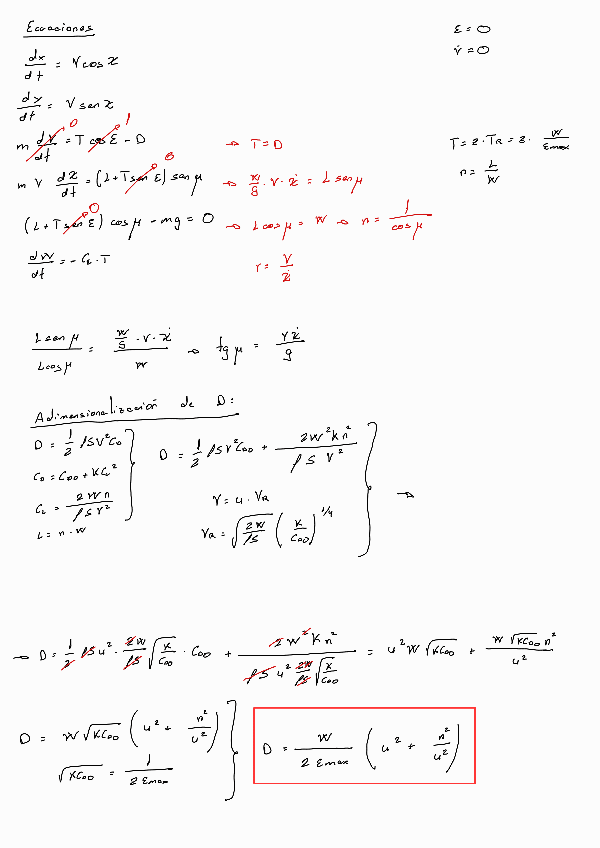 Ecuaciones
ε = 0
v̇ = 0
dx/dt = V cos χ
dy/dt = V sen χ
m dV/dt = T cos ε - D → T = D
0 1
T = 2 · T_R = 2 · W/Emax
n = L/W
m V dχ/dt = (L + T sen ε) sen μ → W/g · V · χ̇ = L sen μ
0
(L + T sen ε) cos μ - mg = 0 → L cos μ = W → n = 1/cos μ
0
dW/dt = - C_E · T
r = V/χ̇
L sen μ / L cos μ = (W/g · V · χ̇) / W → tg μ = V χ̇ / g
Adimensionalización de D:
D = 1/2 ρSV²C_D
C_D = C_D0 + KC_L²
C_L = 2Wn / ρSV²
L = n · W
D = 1/2 ρSV²C_D0 + 2W²Kn² / ρSV²
V = u · V_R
V_R = √(2W/ρS) (K/C_D0)^1/4
→
→ D = 1/2 ρS u² · 2W/ρS √(K/C_D0) · C_D0 + 2W²Kn² / (ρS u² 2W/ρS √(K/C_D0)) = u²W √(KC_D0) + W √(KC_D0) n² / u²
D = W √(KC_D0) (u² + n²/u²)
√(KC_D0) = 1 / 2 Emax
D = W / 2 Emax (u² + n²/u²)